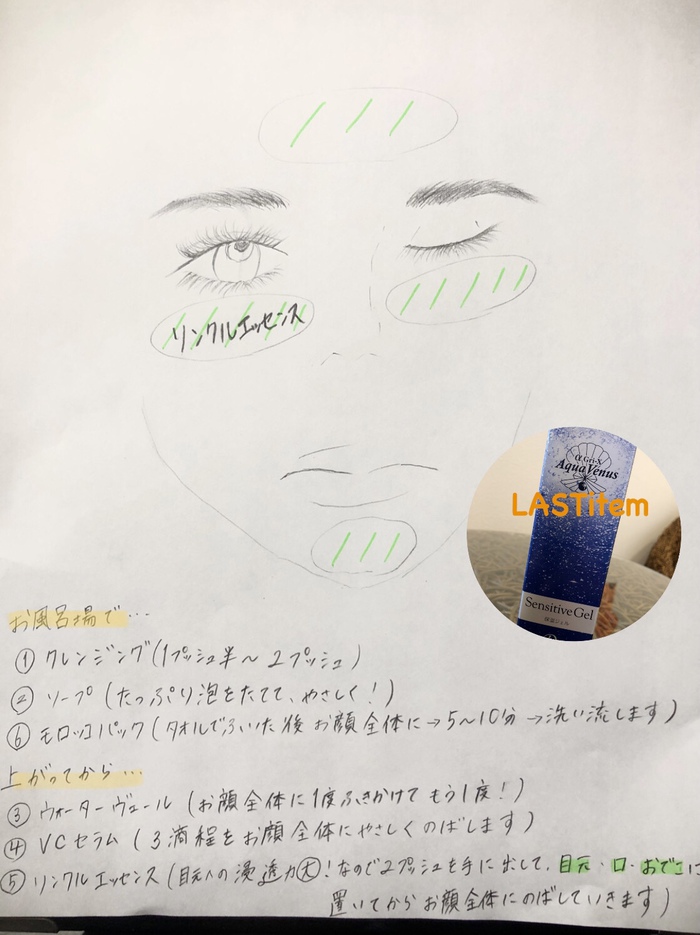 リンクルエッセンス
α Gri-X
Aqua Venus
LASTitem
Sensitive Gel
保湿ジェル
お風呂場で…
① クレンジング(1プッシュ半〜2プッシュ)
② ソープ(たっぷり泡をたてて、やさしく!)
⑥ モロッコパック(タオルでふいた後 お顔全体に→5〜10分→洗い流します)
上がってから…
③ ウォーターヴェール(お顔全体に1度ふきかけてもう1度!)
④ VCセラム(3滴程をお顔全体にやさしくのばします)
⑤ リンクルエッセンス(目元への浸透力大!なので2プッシュを手に出して、目元・口・おでこに
置いてからお顔全体にのばしていきます)